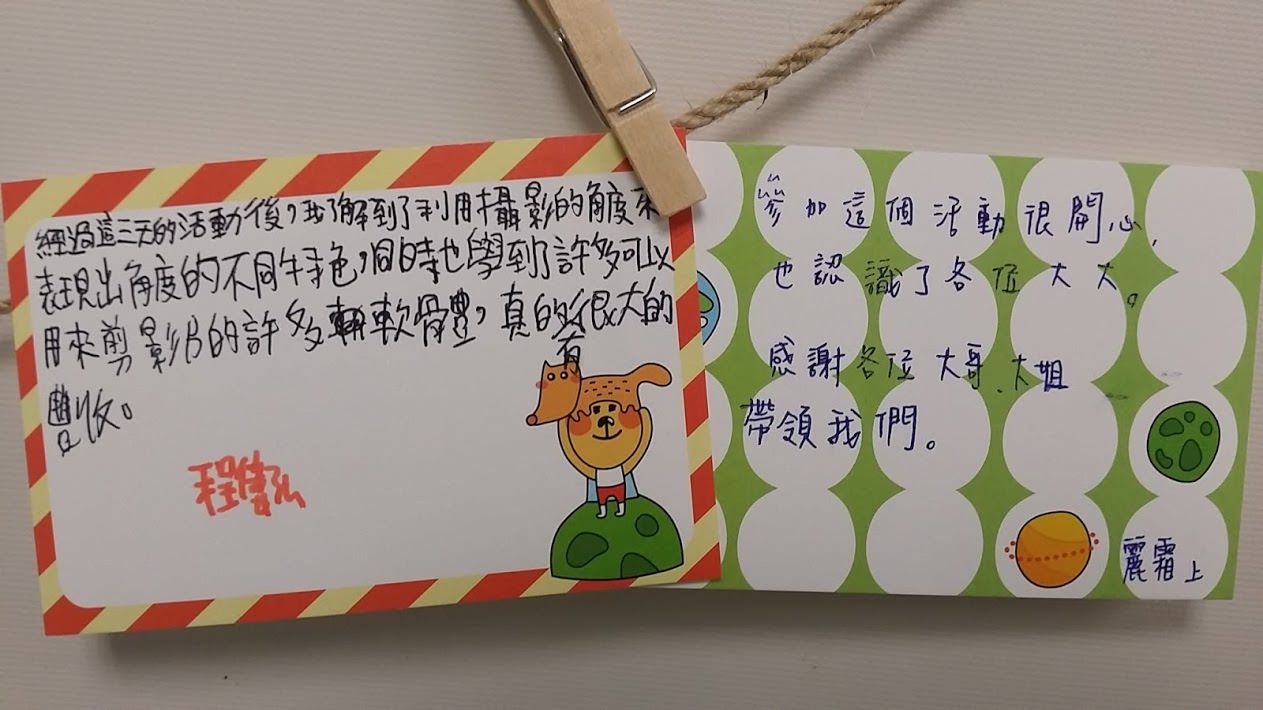 經過這三天的活動後，我了解到了利用攝影的角度來
表現出角度的不同特色，同時也學到了許多可以
用來剪影片的許多軟體，真的有很大的
豐收。
程
參加這個活動很開心，
也認識了各位大大。
感謝各位大哥、大姐
帶領我們。
麗霜上